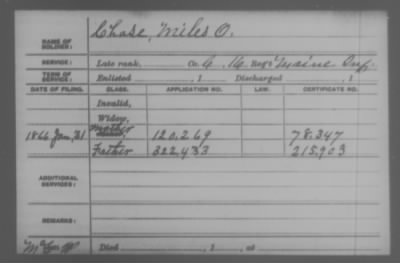 NAME OF SOLDIER: Chase, Miles O.
SERVICE: Late rank, Co. C. 16 Reg't Maine Inf.
TERM OF SERVICE: Enlisted , 1 Discharged , 1
DATE OF FILING. CLASS. APPLICATION NO. LAW. CERTIFICATE NO.
Invalid,
Widow,
1866 Jan, 31 Mother 120,269 78,347
Father 322,433 215,903
ADDITIONAL SERVICES:
REMARKS:
Died , 1 , at